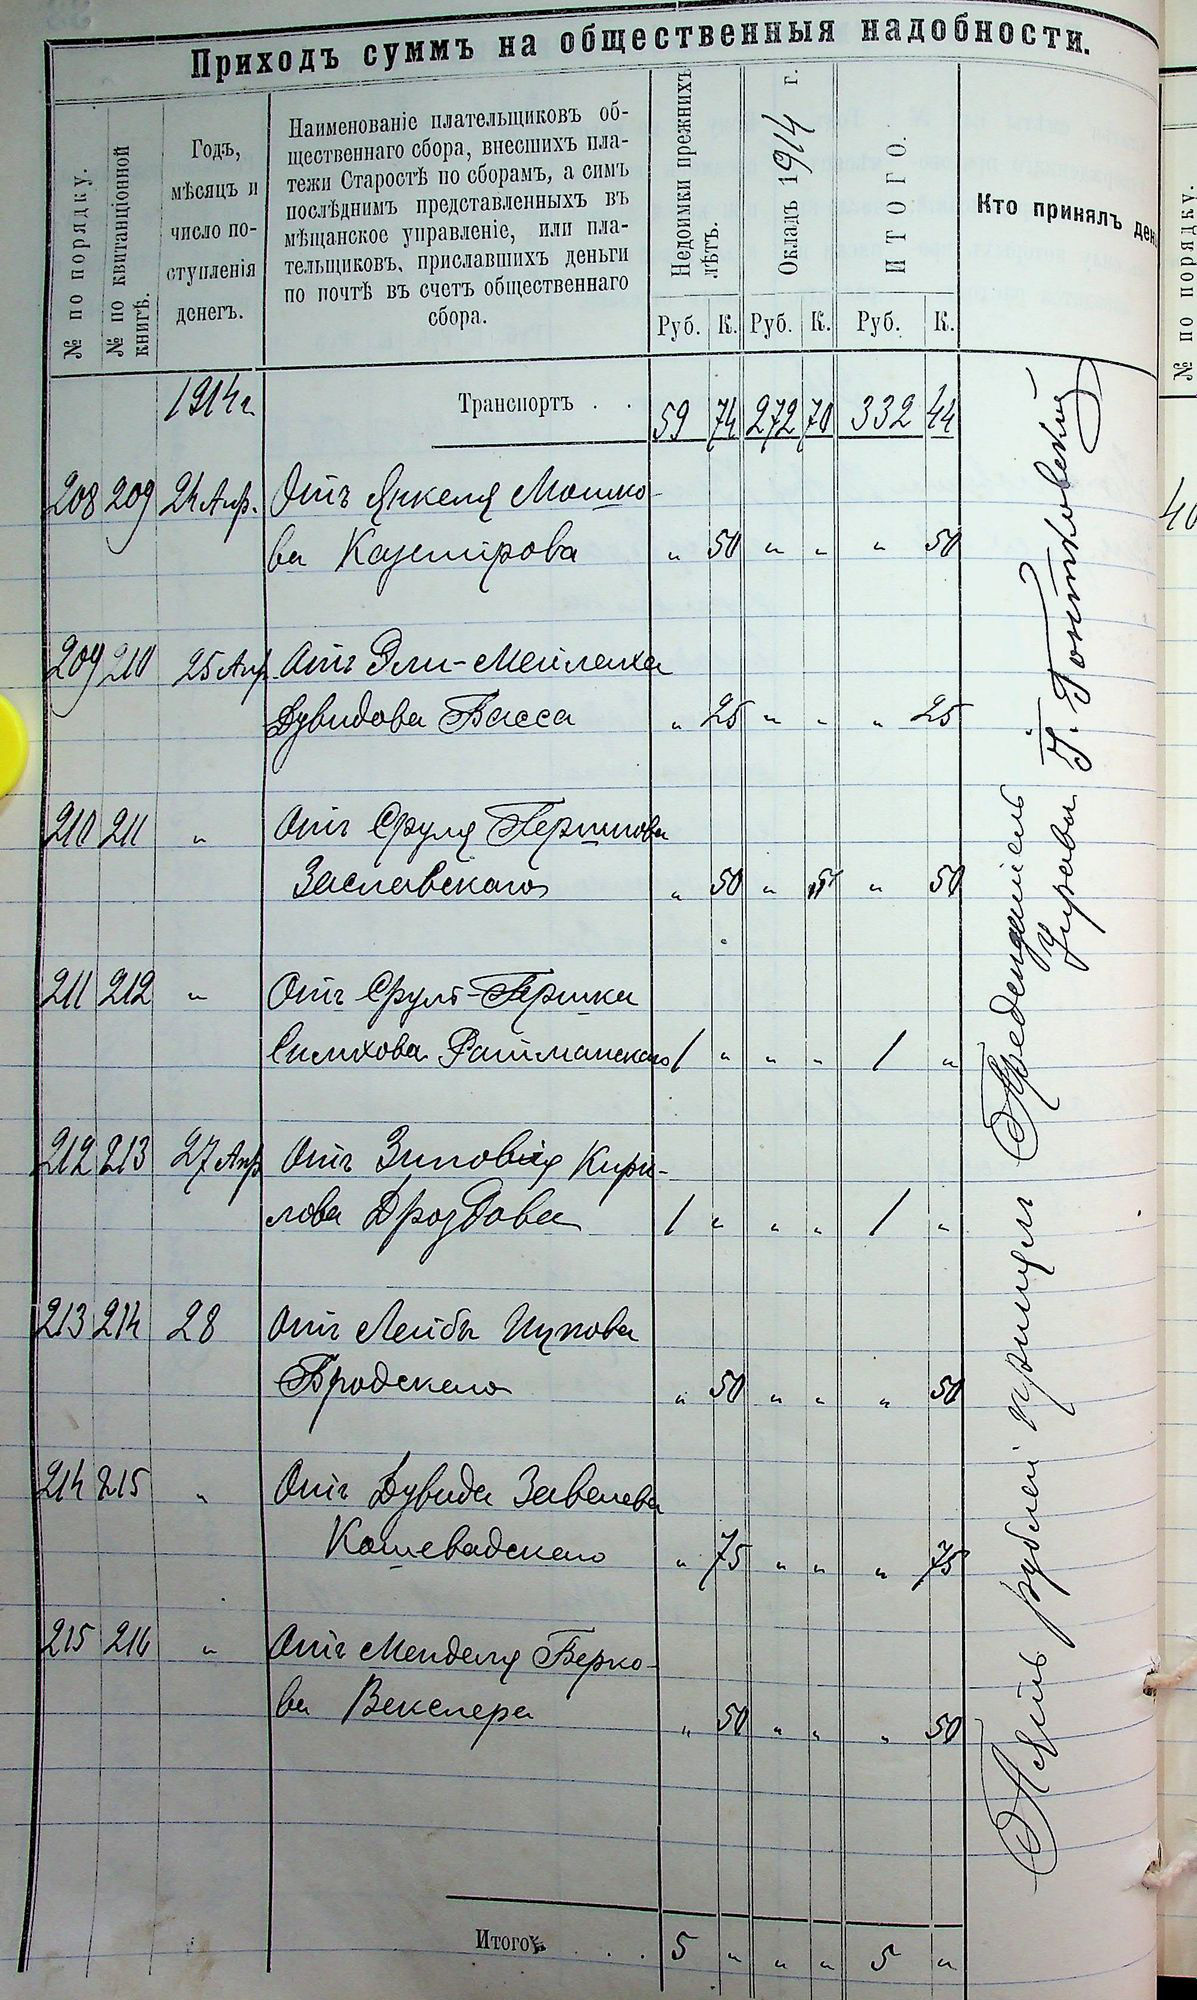 Приходъ суммъ на общественныя надобности.
№ по порядку.
№ по квитанціонной
книгѣ.
Годъ,
мѣсяцъ и
число по-
ступленія
денегъ.
Наименованіе плательщиковъ об-
щественнаго сбора, внесшихъ пла-
тежи Старостѣ по сборамъ, а симъ
послѣднимъ представленныхъ въ
мѣщанское управленіе, или пла-
тельщиковъ, приславшихъ деньги
по почтѣ въ счетъ общественнаго
сбора.
Недоимки прежнихъ
лѣтъ.
Окладъ 1914 г.
ИТОГО.
Кто принялъ ден
Руб. К. Руб. К. Руб. К.
1914 г Транспортъ . . 59 74 272 70 332 44
208 209 24 Апр. Отъ Янкеля Мошко-
ва Казмірова " 50 " " " 50
209 210 25 Апр Отъ Эли-Мейлаха
Дувидова Басса " 25 " " " 25
210 211 " Отъ Сруля Гершкова
Заславскаго " 50 " " 50
211 212 " Отъ Сруль-Гершка
Силихова Райтманскаго 1 " " " 1 "
212 213 27 Апр Отъ Зиновія Кири-
лова Дроздова 1 " " " 1 "
213 214 28 Отъ Лейбы Ицкова
Бродскаго " 50 " " " 50
214 215 " Отъ Дувида Завелева
Кошевадскаго " 75 " " " 75
215 216 " Отъ Менделя Берко-
ва Векслера " 50 " " " 50
Итого . . . 5 " " " 5 "
Пять рублей принялъ Предсѣдатель
Управы Г. Гонтковскій
№ по порядку.
40